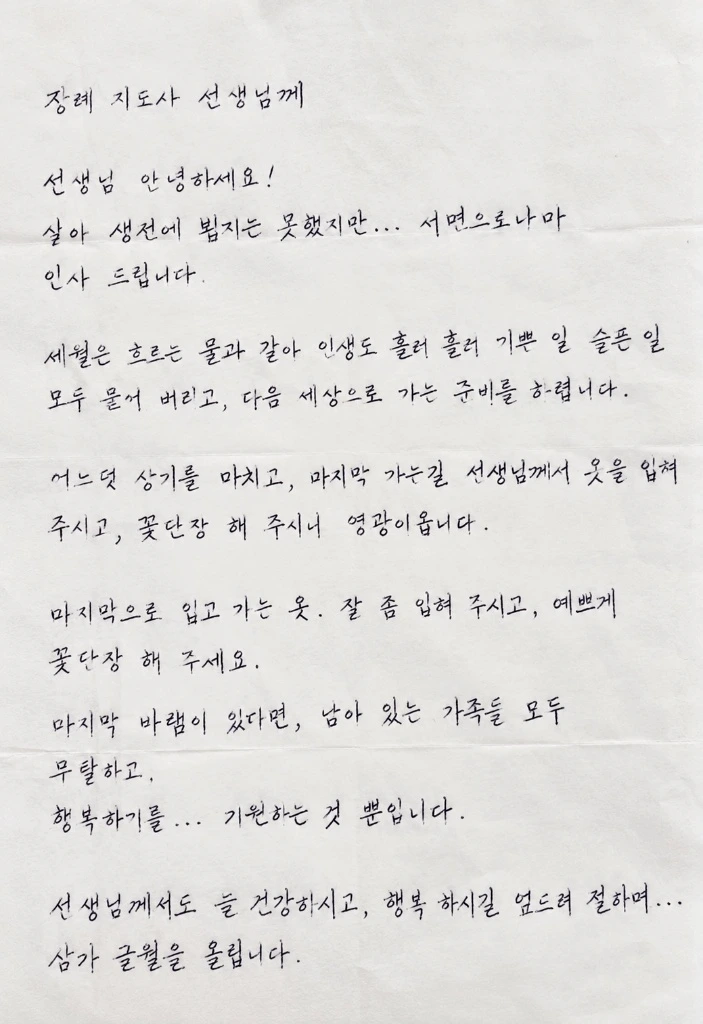 장례 지도사 선생님께
선생님 안녕하세요!
살아 생전에 뵙지는 못했지만... 서면으로나마
인사 드립니다.
세월은 흐르는 물과 같아 인생도 흘러 흘러 기쁜 일 슬픈 일
모두 묻어 버리고, 다음 세상으로 가는 준비를 하렵니다.
어느덧 상기를 마치고, 마지막 가는길 선생님께서 옷을 입혀
주시고, 꽃단장 해 주시니 영광이옵니다.
마지막으로 입고 가는 옷. 잘 좀 입혀 주시고, 예쁘게
꽃단장 해 주세요.
마지막 바램이 있다면, 남아 있는 가족들 모두
무탈하고.
행복하기를... 기원하는 것 뿐입니다.
선생님께서도 늘 건강하시고, 행복 하시길 엎드려 절하며...
삼가 글월을 올립니다.